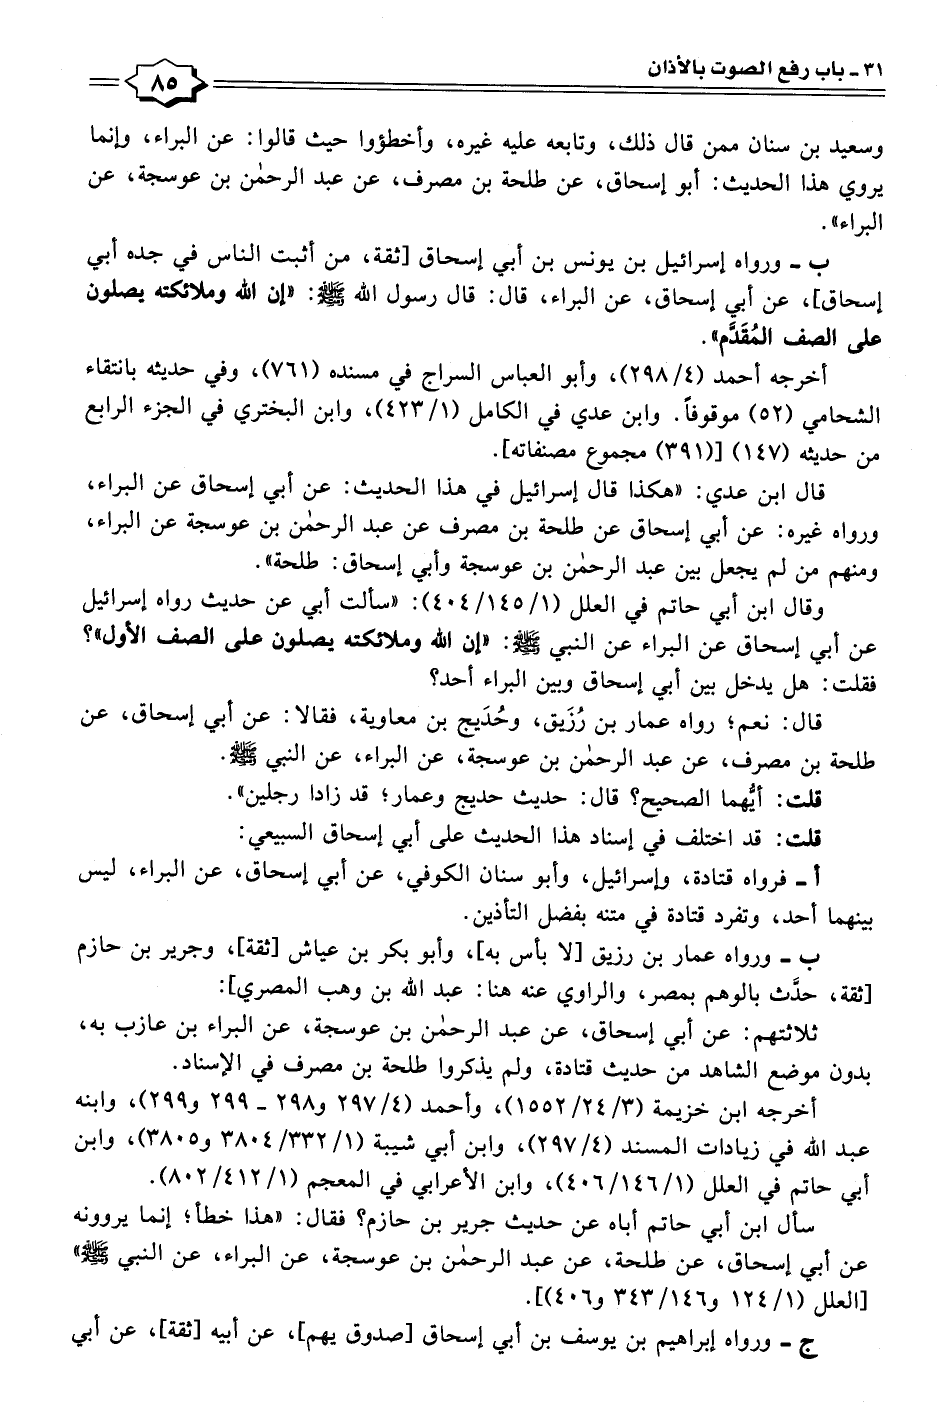 ٣١ - باب رفع الصوت بالأذان
٨٥
وسعيد بن سنان ممن قال ذلك، وتابعه عليه غيره، وأخطؤوا حيث قالوا: عن البراء، وإنما
يروي هذا الحديث: أبو إسحاق، عن طلحة بن مصرف، عن عبد الرحمٰن بن عوسجة، عن
البراء».
ب - ورواه إسرائيل بن يونس بن أبي إسحاق [ثقة، من أثبت الناس في جده أبي
إسحاق]، عن أبي إسحاق، عن البراء، قال: قال رسول الله ﷺ: «إن الله وملائكته يصلون
على الصف المُقَدَّم».
أخرجه أحمد (٢٩٨/٤)، وأبو العباس السراج في مسنده (٧٦١)، وفي حديثه بانتقاء
الشحامي (٥٢) موقوفاً. وابن عدي في الكامل (٤٢٣/١)، وابن البختري في الجزء الرابع
من حديثه (١٤٧) [(٣٩١) مجموع مصنفاته].
قال ابن عدي: «هكذا قال إسرائيل في هذا الحديث: عن أبي إسحاق عن البراء،
ورواه غيره: عن أبي إسحاق عن طلحة بن مصرف عن عبد الرحمٰن بن عوسجة عن البراء،
ومنهم من لم يجعل بين عبد الرحمٰن بن عوسجة وأبي إسحاق: طلحة».
وقال ابن أبي حاتم في العلل (٤٠٤/١٤٥/١): «سألت أبي عن حديث رواه إسرائيل
عن أبي إسحاق عن البراء عن النبي ﷺ: «إن الله وملائكته يصلون على الصف الأول»؟
فقلت: هل يدخل بين أبي إسحاق وبين البراء أحد؟
قال: نعم؛ رواه عمار بن رُزَيق، وحُدَيج بن معاوية، فقالا: عن أبي إسحاق، عن
طلحة بن مصرف، عن عبد الرحمٰن بن عوسجة، عن البراء، عن النبي ﷺ.
قلت: أيُّهما الصحيح؟ قال: حديث حديج وعمار؛ قد زادا رجلين».
قلت: قد اختلف في إسناد هذا الحديث على أبي إسحاق السبيعي:
أ - فرواه قتادة، وإسرائيل، وأبو سنان الكوفي، عن أبي إسحاق، عن البراء، ليس
بينهما أحد، وتفرد قتادة في متنه بفضل التأذين.
ب - ورواه عمار بن رزيق [لا بأس به]، وأبو بكر بن عياش [ثقة]، وجرير بن حازم
[ثقة، حدَّث بالوهم بمصر، والراوي عنه هنا: عبد الله بن وهب المصري]:
ثلاثتهم: عن أبي إسحاق، عن عبد الرحمٰن بن عوسجة، عن البراء بن عازب به،
بدون موضع الشاهد من حديث قتادة، ولم يذكروا طلحة بن مصرف في الإسناد.
أخرجه ابن خزيمة (١٥٥٢/٢٤/٣)، وأحمد (٢٩٧/٤ و٢٩٨ - ٢٩٩ و٢٩٩)، وابنه
عبد الله في زيادات المسند (٢٩٧/٤)، وابن أبي شيبة (٣٨٠٤/٣٣٢/١ و٣٨٠٥)، وابن
أبي حاتم في العلل (٤٠٦/١٤٦/١)، وابن الأعرابي في المعجم (٨٠٢/٤١٢/١).
سأل ابن أبي حاتم أباه عن حديث جرير بن حازم؟ فقال: «هذا خطأ؛ إنما يروونه
عن أبي إسحاق، عن طلحة، عن عبد الرحمٰن بن عوسجة، عن البراء، عن النبي ﷺ»
[العلل (١٢٤/١ و٣٤٣/١٤٦ و٤٠٦)].
ج - ورواه إبراهيم بن يوسف بن أبي إسحاق [صدوق يهم]، عن أبيه [ثقة]، عن أبي